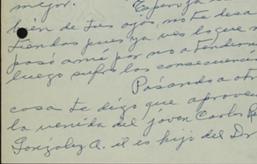 mejor. Espero ya
bién de tus ojos, no te desa
tiendas pues ya ves lo que me
pasó a mí por no atenderme
luego sufro las consecuencias
Pasando a otra
cosa te digo que aprovecho
la venida del joven Carlos R.
González A. él es hijo del Dr